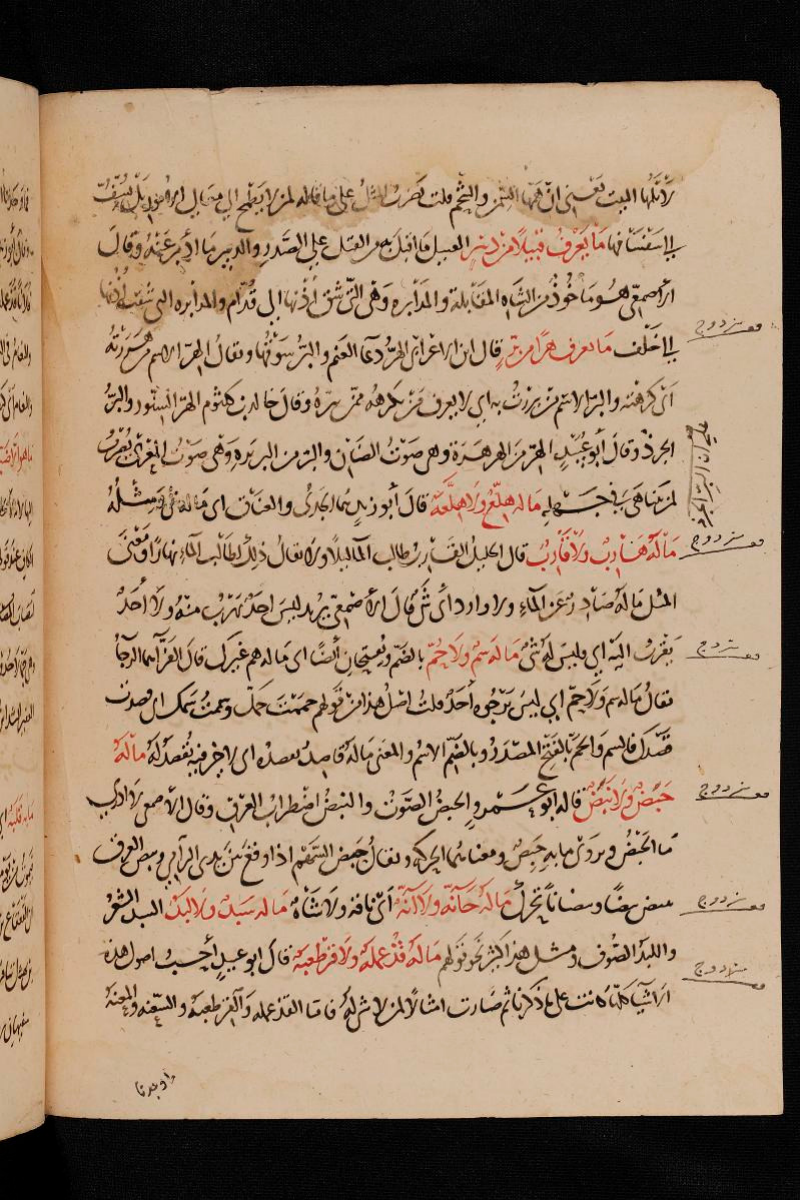 لانلها البيت تعني ان فيها الشحم قلت يضرب المثل على ما قاله لمن لا يطمح الى معالي الامور بل يسف
الى اسفسافها ما يعرف قبيلا من دبير القبيل ما اقبل به من الفتل على الصدر والدبير ما ادبر عنه وقال
الاصمعي هو ماخوذ من الشاه المقابلة والمدابره وهي التي شق اذنها الى قدام والمدابره التي شقت اذنها
الى خلف ما يعرف هرا من بر قال ابن الاعرابي الهر دعا الغنم والبر سوقها ويقال الهر الاسم من هررته
اي كرهته والبر الاسم من بررت به اي لا يعرف من يكرهه ممن يبره وقال خالد بن كلثوم الهر السنور والبر
الجرذ وقال ابو عبيد الهر من الهرهرة وهي صوت الضان والبر من البربره وهي صوت المعزى يضرب
لمن يتناهى في جهله ماله هلع ولا هلعة قال ابو زيد هما الجدي والعناق اي ماله شئ ومثله
ماله هارب ولا قارب قال الخليل القارب طالب الماء ليلا ولا يقال ذلك لطالب الماء نهارا ومعنى
المثل ماله صادر عن الماء ولا وارد اي شئ قال الاصمعي يريد ليس احد يهرب منه ولا احد
يقرب اليه اي وليس له شئ ماله سم ولا حم بالضم ويفتحان ايضا اي ماله هم غيرك قال الفراء هما الرجا
يقال ماله سم ولا حم اي ليس يرجوه احد قلت اصل هذا من قولهم حممت حمك وسممت سمك اي قصدت
قصدك فالسم والحم بالفتح المصدر وبالضم الاسم والمعنى ماله قاصد يقصده اي لا خير فيه يقصد له ماله
حبض ولا نبض قاله ابو عمرو الحبض الصوت والنبض اضطراب العرق وقال الاصمعي لا ادري
ما الحبض ويروى ما به حبض ومعناهما الحركه ويقال حبض السهم اذا وقع بين يدي الرامي ونبض العرق
ينبض نبضا ونبضانا تحرك ماله حانة ولا آنة اي ناقة ولا شاة ماله سبد ولا لبد السبد الشعر
واللبد الصوف ومثل هذا كثير نحو قولهم ماله قذعمله ولا قرطعبه قال ابو عبيد احسب اصول هذه
الاشيا كلها كانت على ما ذكرنا ثم صارت امثالا لمن لا شئ له فاما القذعمله والقرطعبه والسعنه والمعنه
مزدوج
مزدوج
مزدوج
مزدوج
مزدوج
مزدوج